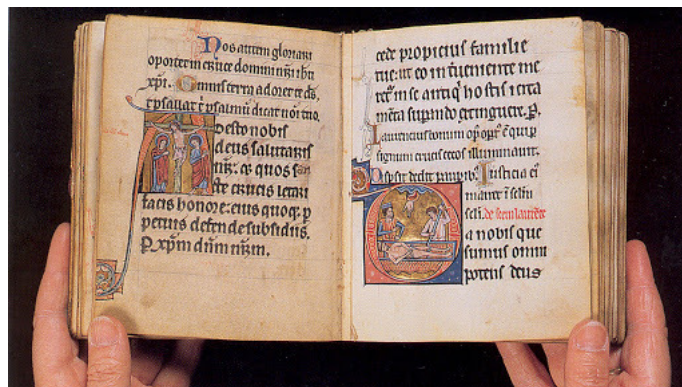 Nos autem gloriari
oportet in cruce domini nr̄i ihu
xpi. Omnis terra adoret te ds.
et psallat t̄ psalmū dicat noī tuo.
Adesto nobis
deus salutaris
nr̄. et quos
crucis letari
facis honore. eius quoq; p
petuis defende subsidiis.
P xp̄m dn̄m nr̄m.
cede propicius familie
tue. ut eo inteueniente me
in se antiq̄ hostis
menta superando extinguere. P.
Laurencius bonum op̄
signum crucis cecos illuminauit.
dedit pauperib; Iusticia eī
manet ī sclm̄
scli. de
a nobis que
sumus omni
potens deus